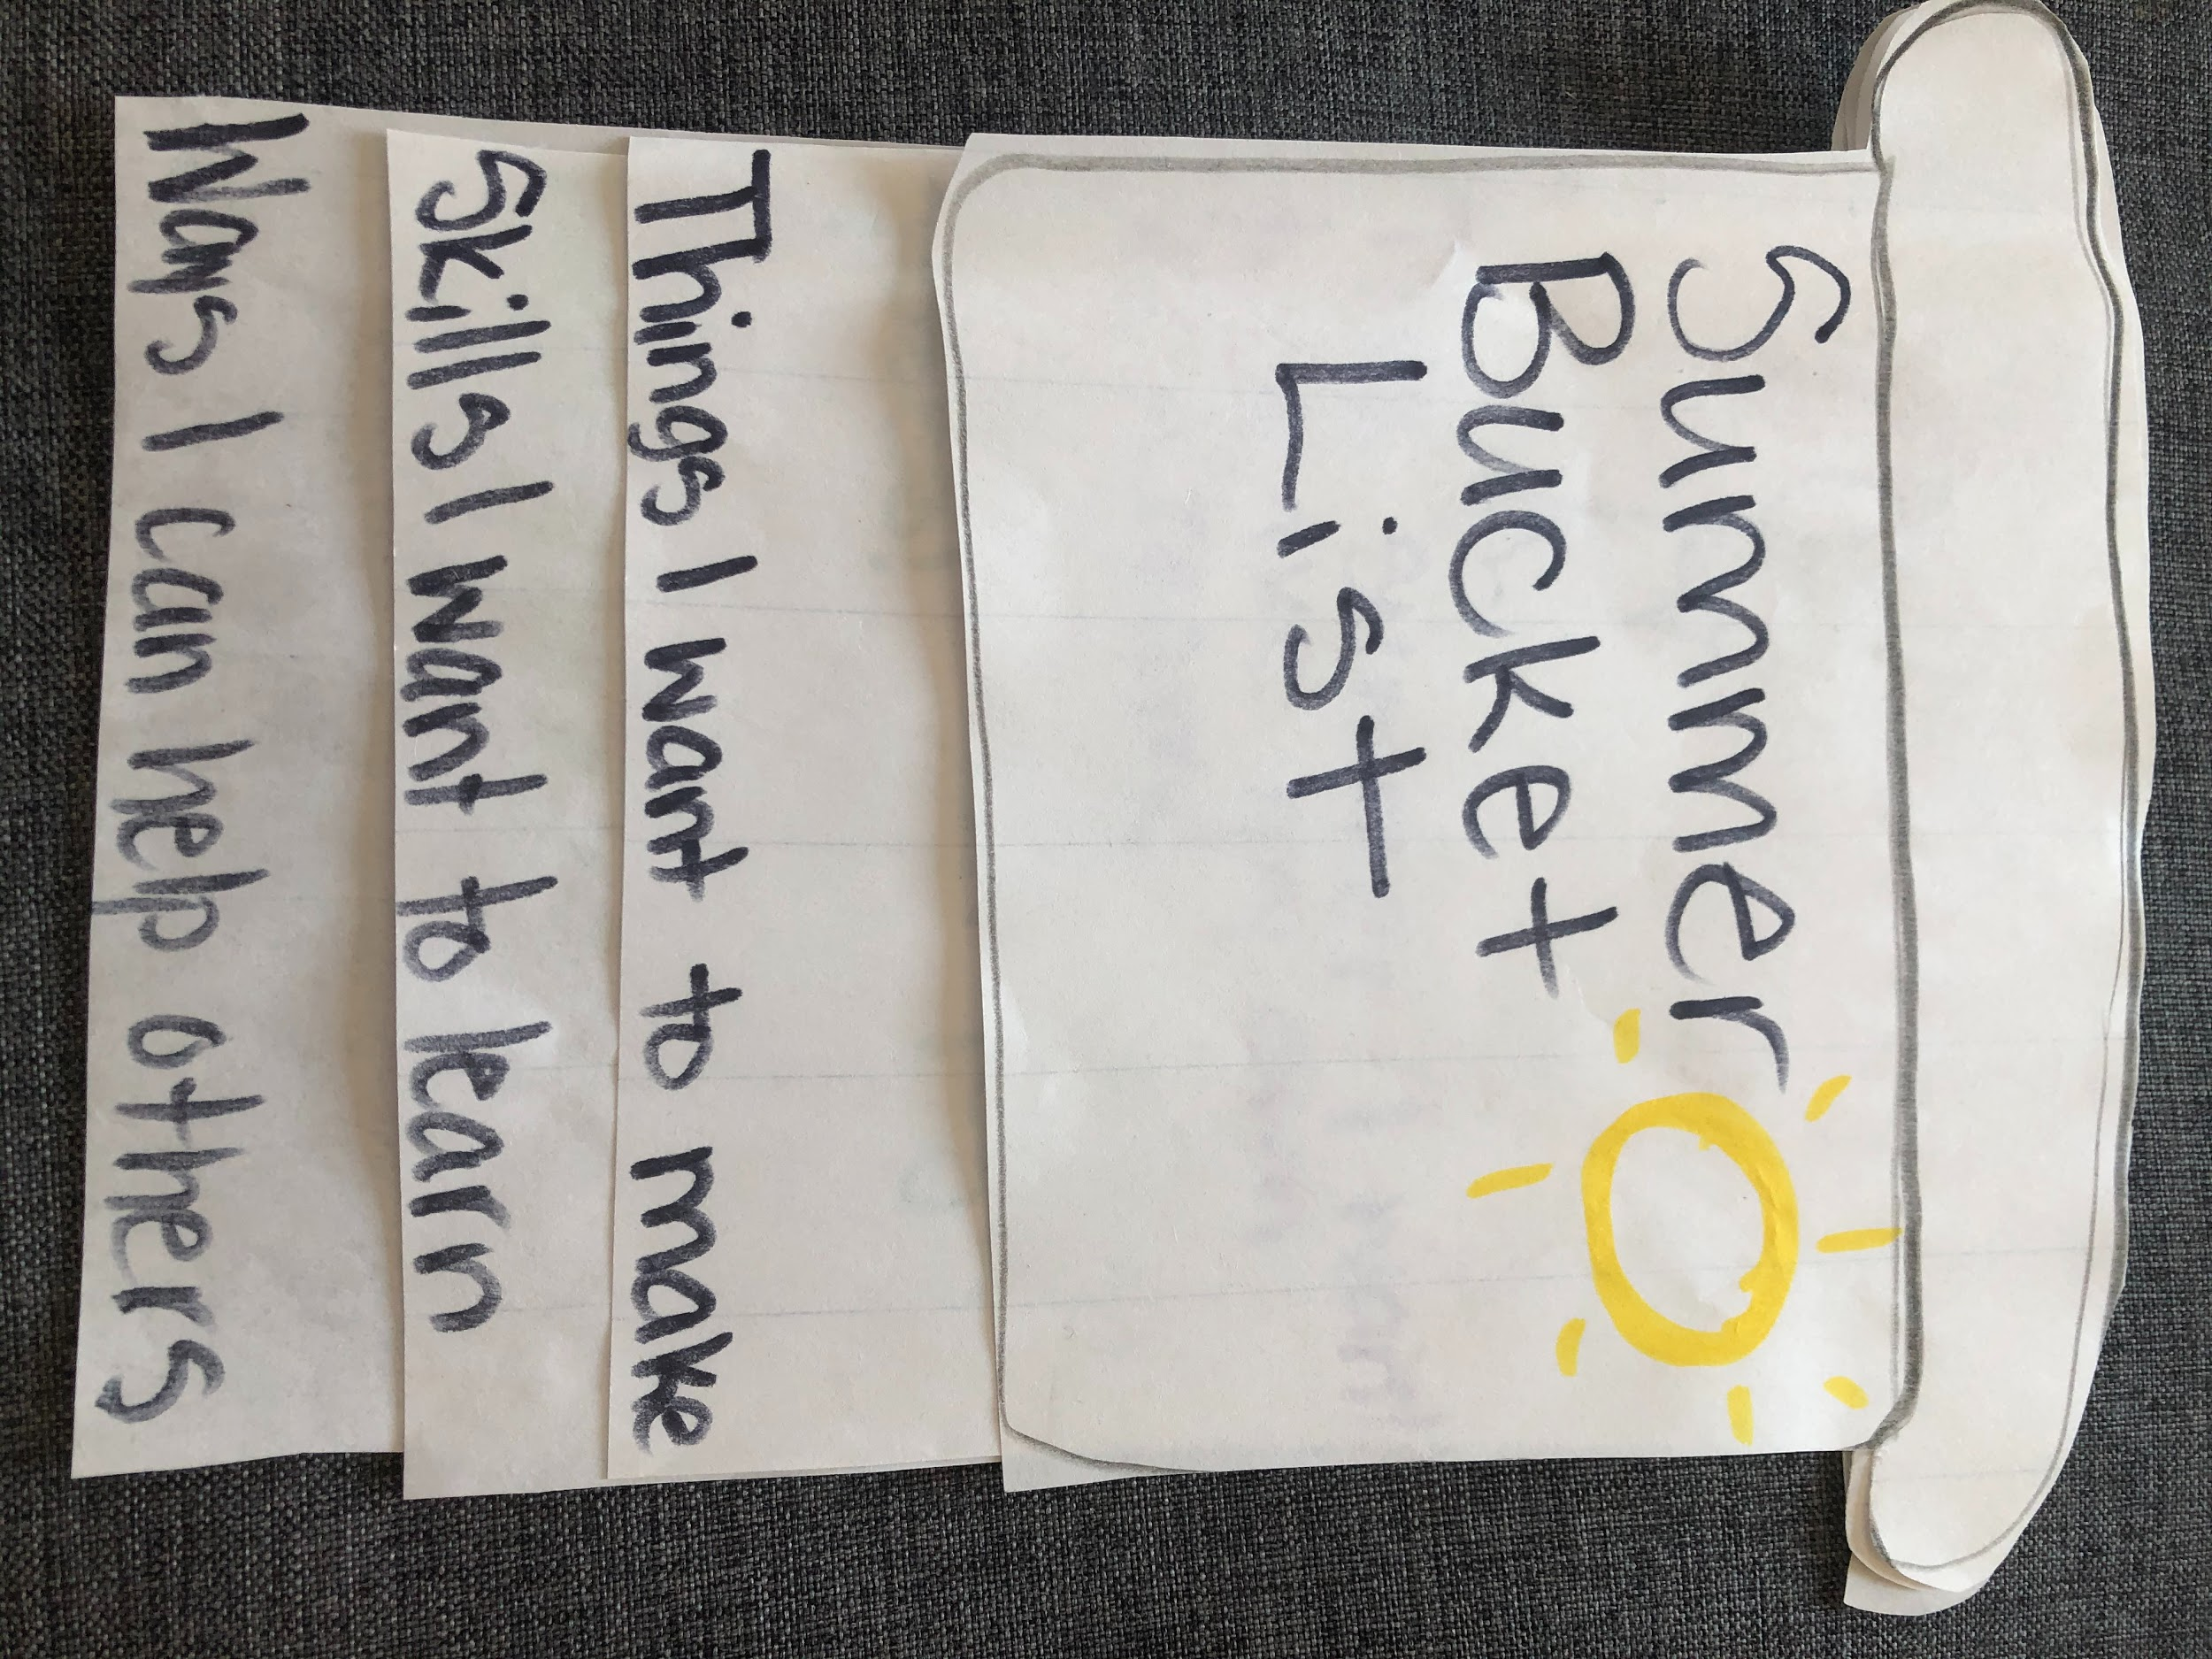 Summer
Bucket
List
Things I want to make
Skills I want to learn
Ways I can help others